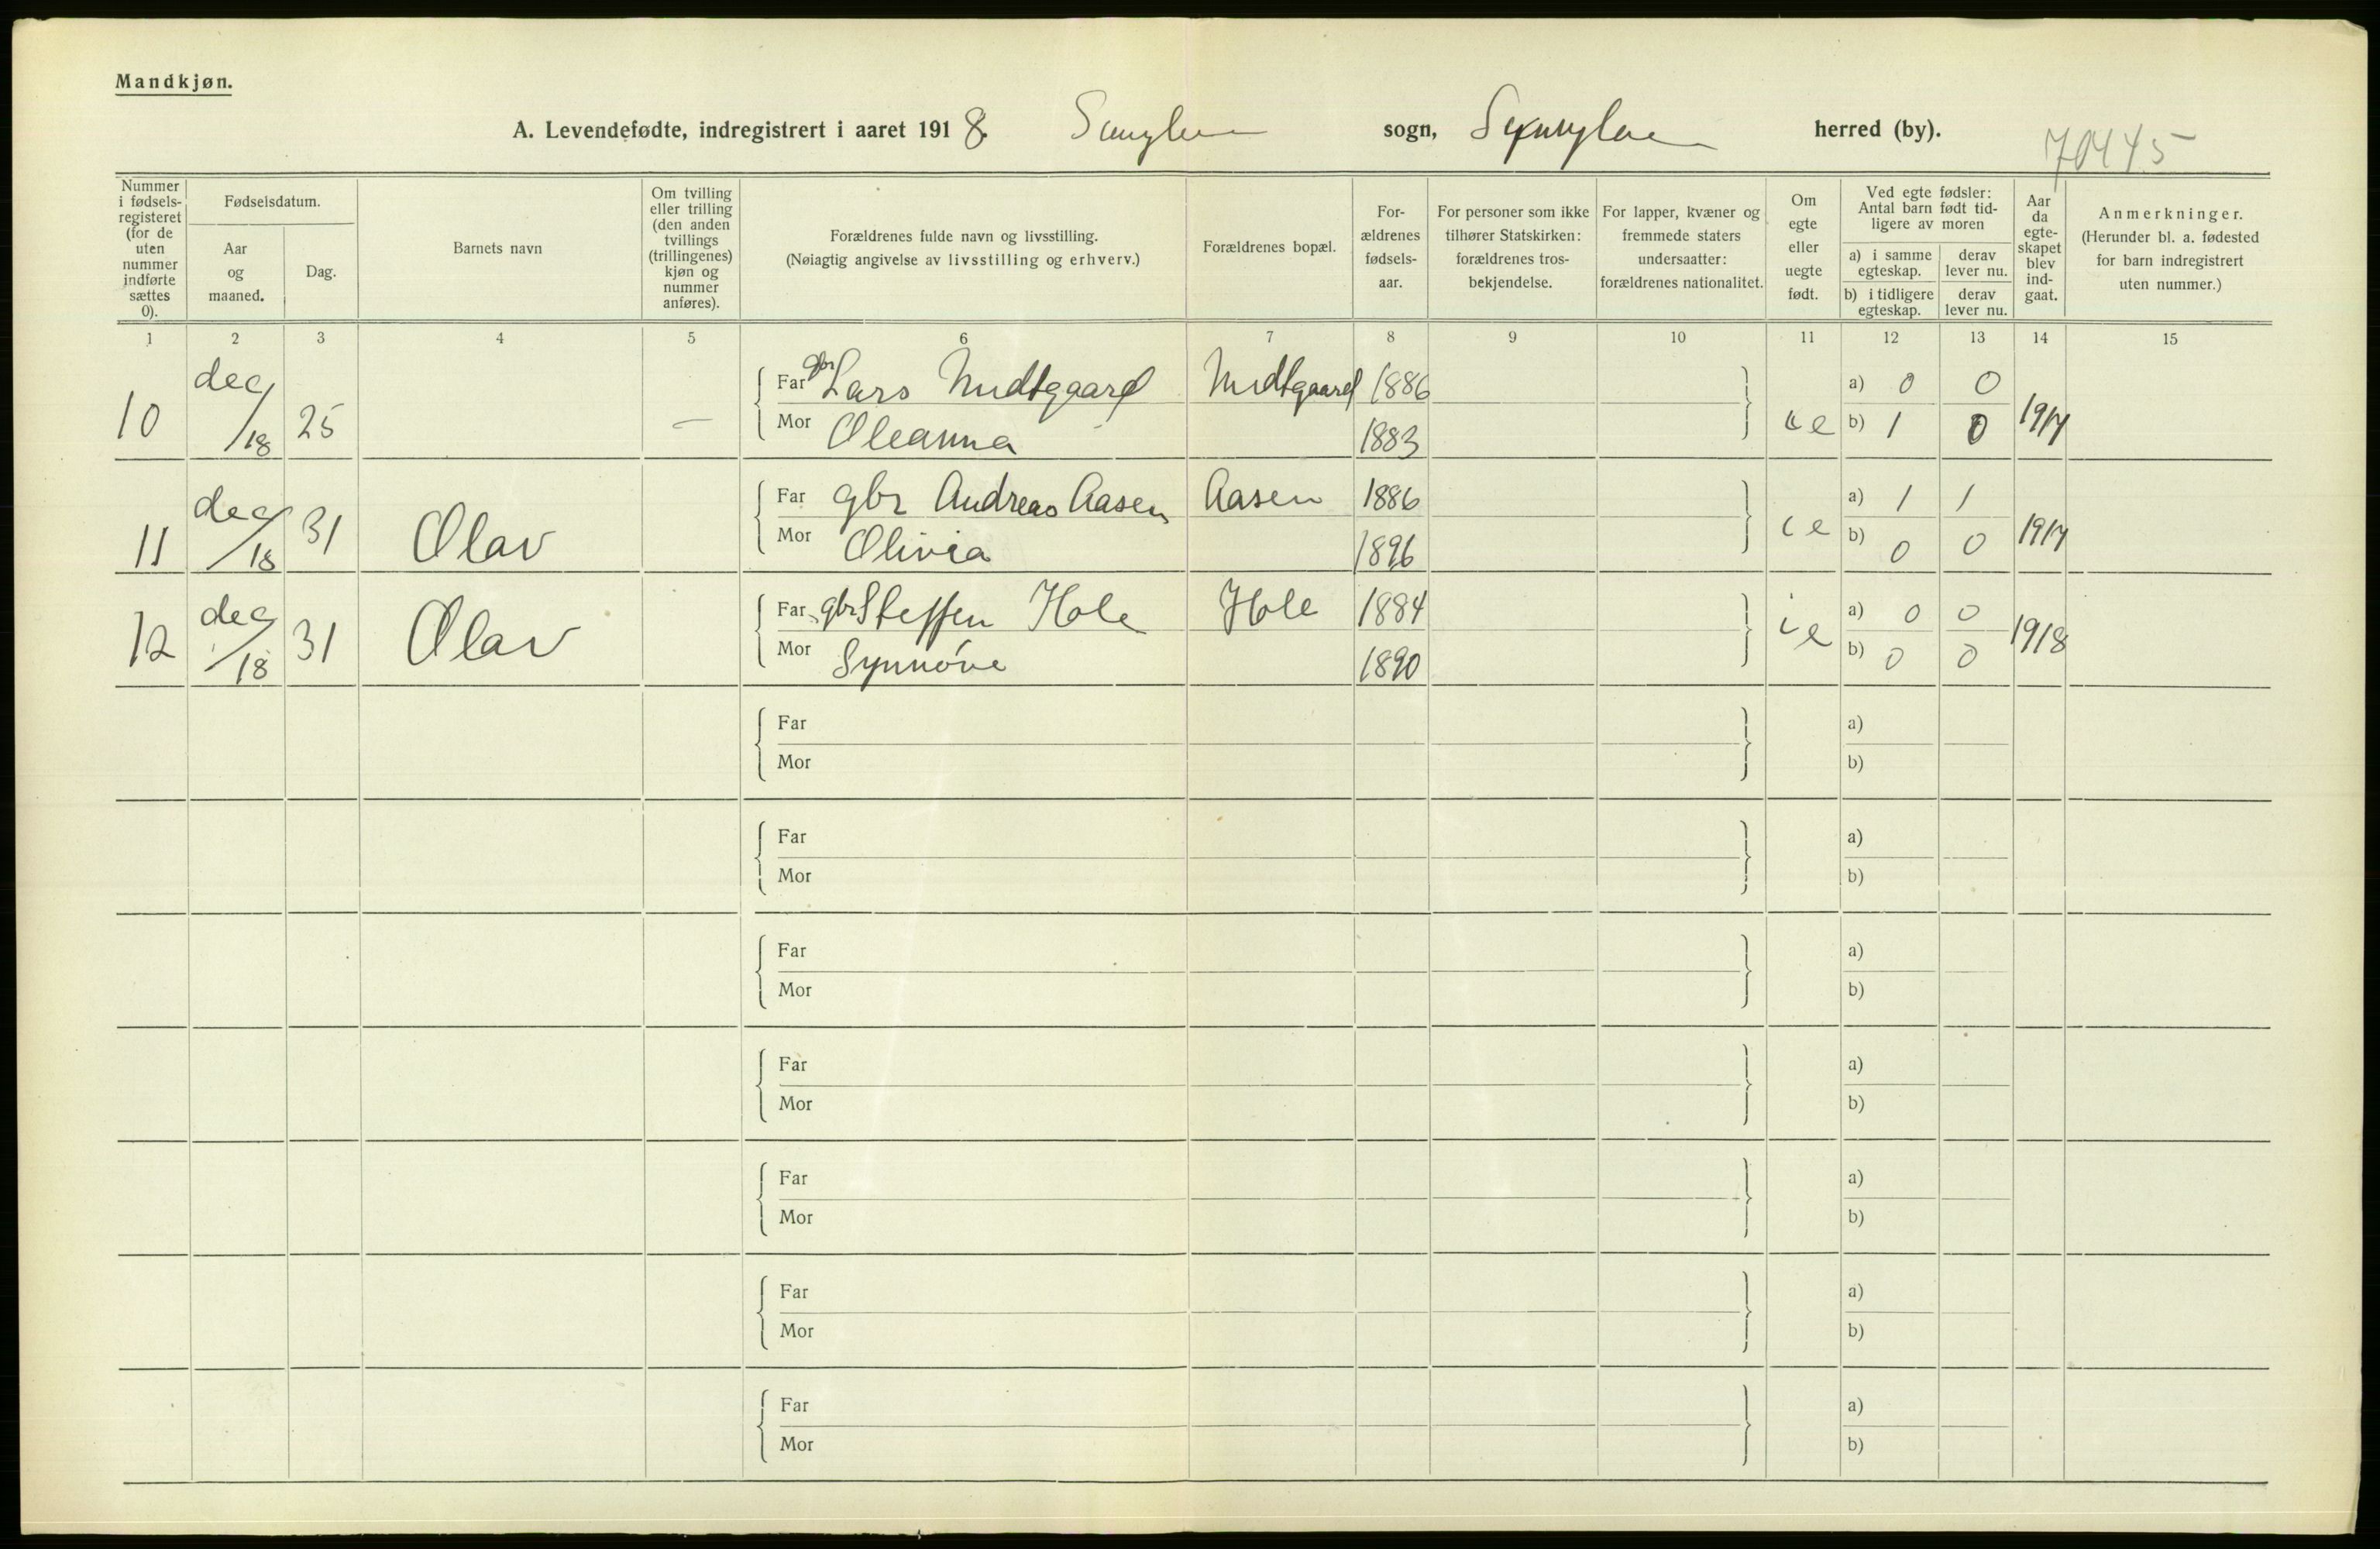 Mandkjøn.
A. Levendefødte, indregistrert i aaret 1918. sogn, herred (by).
70445
Nummer i fødsels-registeret (for de uten nummer indførte sættes 0).
Fødselsdatum.
Aar og maaned.
Dag.
Barnets navn
Om tvilling eller trilling (den anden tvillings (trillingenes) kjøn og nummer anføres).
Forældrenes fulde navn og livsstilling.
(Nøiagtig angivelse av livsstilling og erhverv.)
Forældrenes bopæl.
For-ældrenes fødsels-aar.
For personer som ikke tilhører Statskirken: forældrenes tros-bekjendelse.
For lapper, kvæner og fremmede staters undersaatter: forældrenes nationalitet.
Om egte eller uegte født.
Ved egte fødsler: Antal barn født tid-ligere av moren
a) i samme egteskap.
derav lever nu.
b) i tidligere egteskap.
derav lever nu.
Aar da egte-skapet blev ind-gaat.
Anmerkninger.
(Herunder bl. a. fødested for barn indregistrert uten nummer.)
1 2 3 4 5 6 7 8 9 10 11 12 13 14 15
10 dec/18 25 — Far gbr Lars Midtgaard Midtgaard 1886 a) 0 0
Mor Oleanna 1883 ie b) 1 0 1917
11 dec/18 31 Olav Far gbr Andreas Aasen Aasen 1886 a) 1 1
Mor Olivia 1896 ie b) 0 0 1917
12 dec/18 31 Olav Far gbr Steffen Hole Hole 1884 a) 0 0
Mor Synnóve 1890 ie b) 0 0 1918
Far a)
Mor b)
Far a)
Mor b)
Far a)
Mor b)
Far a)
Mor b)
Far a)
Mor b)
Far a)
Mor b)
Far a)
Mor b)